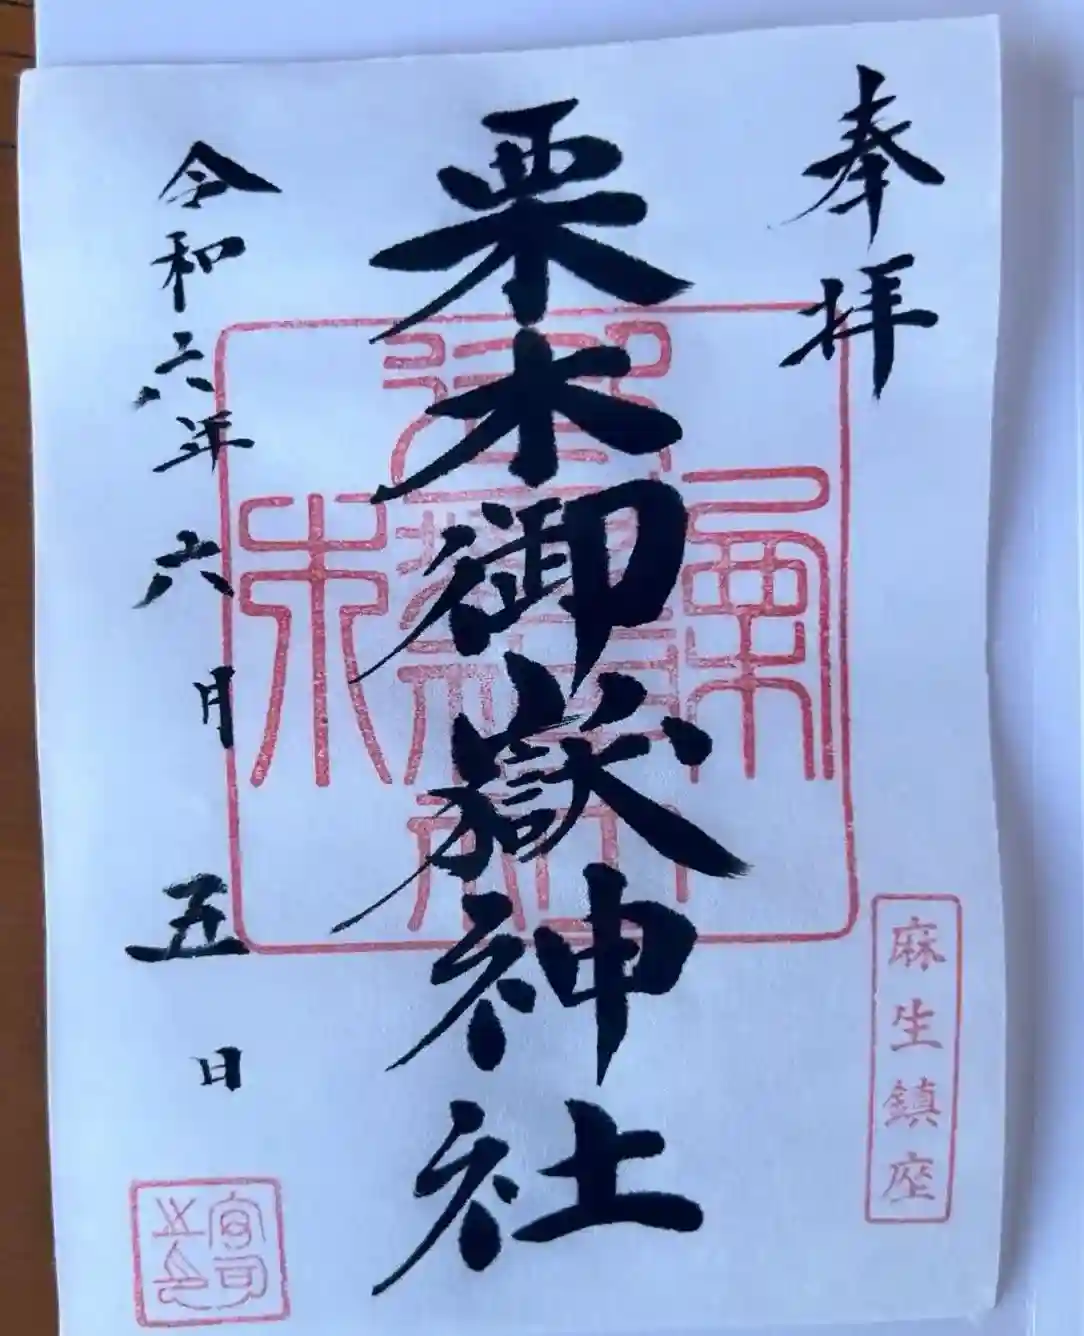 奉拝
麻生鎮座
栗木御嶽神社
令和六年六月五日
宮司之印